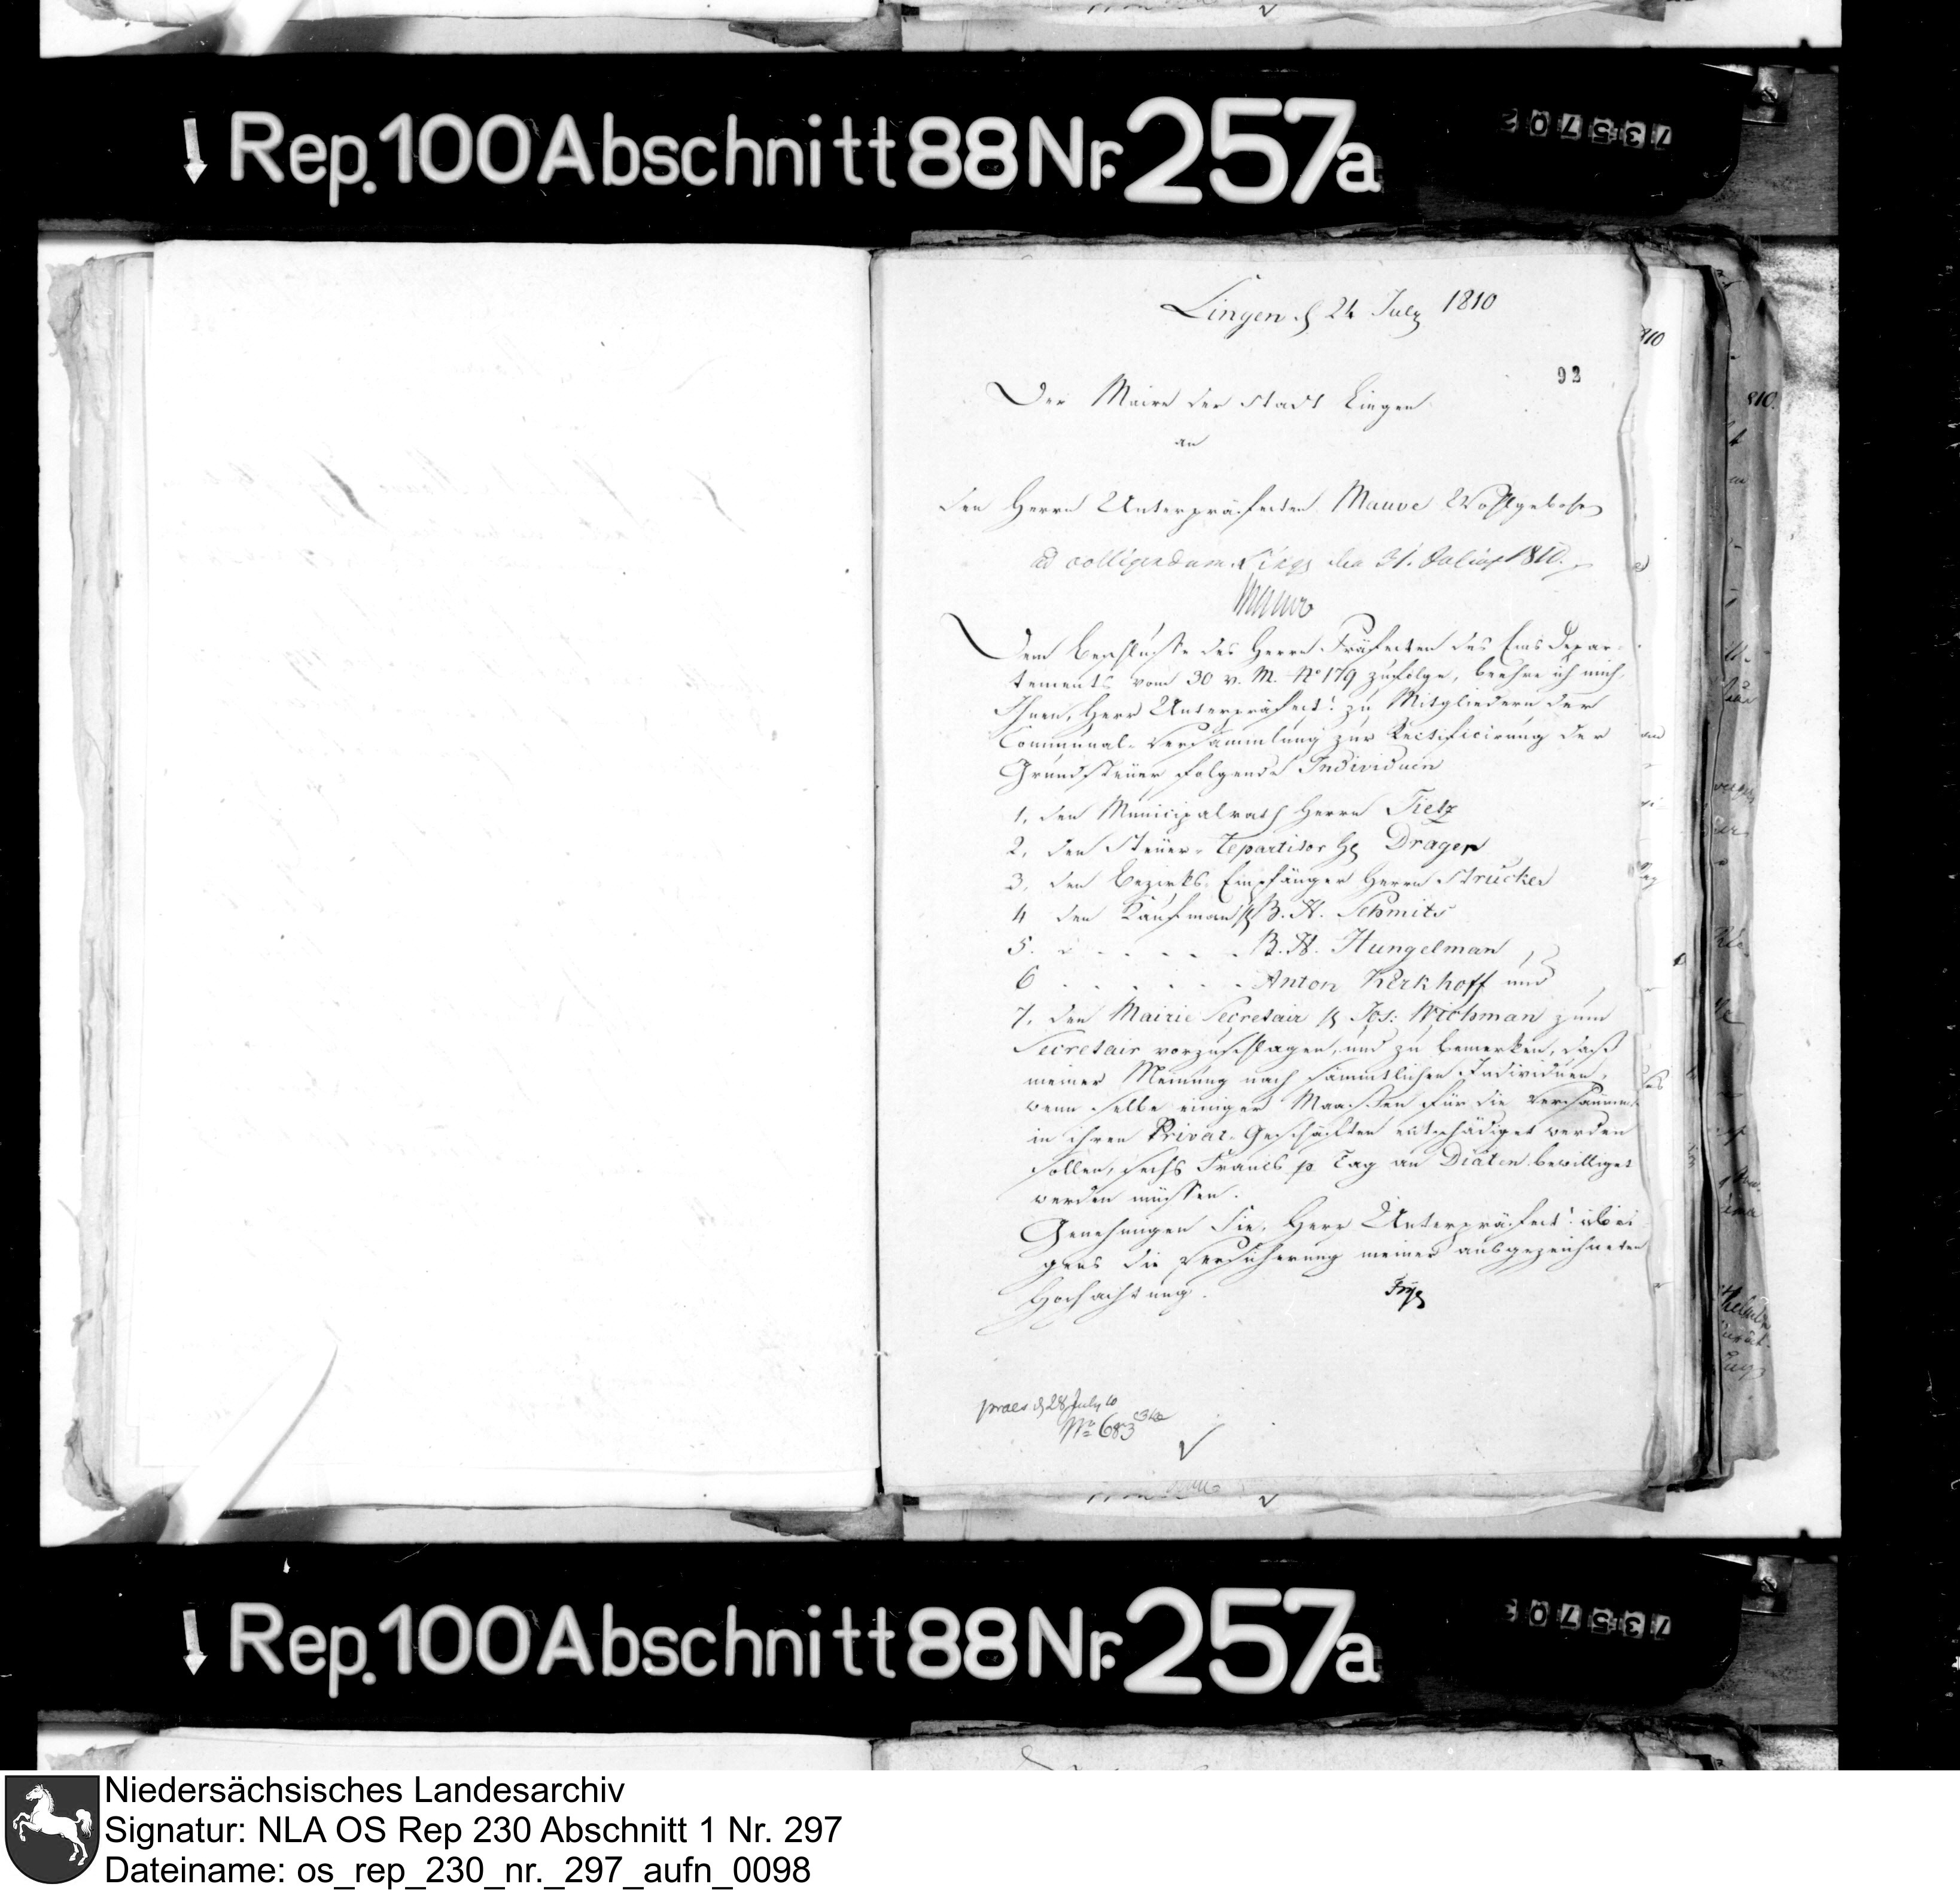 Rep. 100 Abschnitt 88 Nr. 257a
73570
Lingen d 24 July 1810
93
Der Maire der Stadt Lingen
an
den Herrn Unterpräfecten Mauve Wohlgebohren
ad colligendum. Lingen den 31. Julius 1810.
Mauve
Dem Beschlusse des Herrn Präfecten des Ems Depar-
tements vom 30 v. M. No 179 zufolge, beehre ich mich
Ihnen, Herr Unterpräfect! zu Mitgliedern der
Communal-Versammlung zur Rectificirung der
Grundsteuer folgende Individuen
1, den Municipalrath Herrn Tietz
2, den Steuer-Repartitor H. Drager
3, den Bezirks-Empfänger Herrn Strucker
4 den Kaufman H B. H. Schmits
5. B. H. Hungelman
6 Anton Kerkhoff und
7, den Mairie Secretair H Jos: Wichman zum
Secretair vorzuschlagen, und zu bemerken, daß
meiner Meinung nach sämmtlichen Individuen,
wenn selbe einiger Maaßen für die Versäumniß
in ihren Privat-Geschäften entschädiget werden
sollen, sechs Francs p Tag an Diäten bewilliget
werden müssen.
Genehmigen Sie, Herr Unterpräfect! übri
gens die Versicherung meiner ausgezeichneten
Hochachtung.
praes d 28 July 10
No 683
Rep. 100 Abschnitt 88 Nr. 257a
73570
Niedersächsisches Landesarchiv
Signatur: NLA OS Rep 230 Abschnitt 1 Nr. 297
Dateiname: os_rep_230_nr._297_aufn_0098